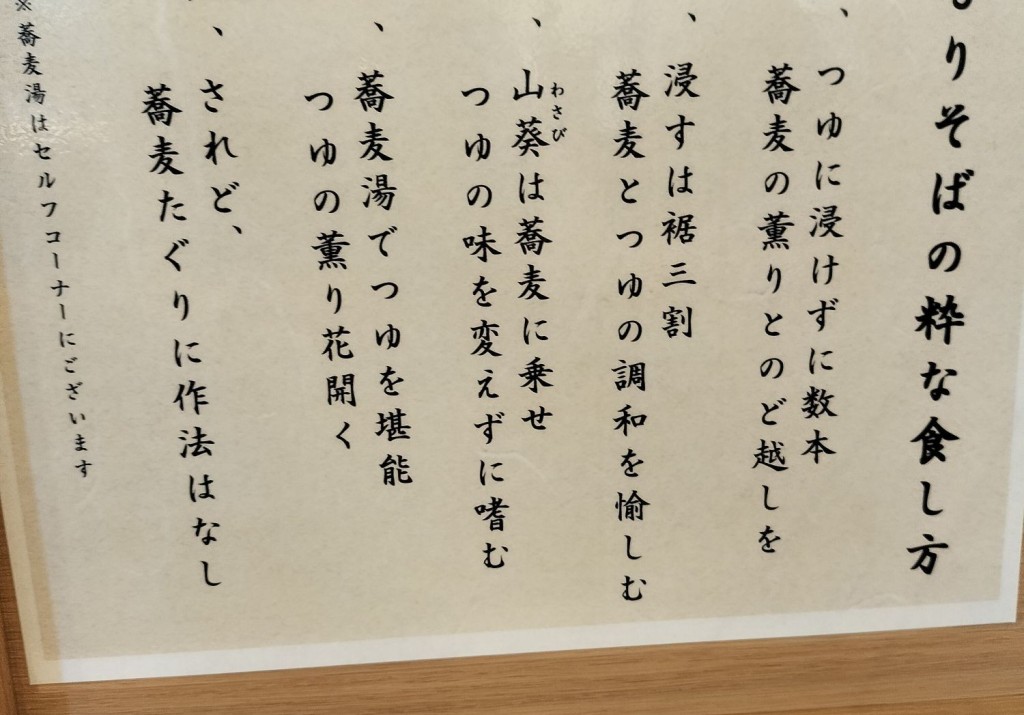 りそばの粋な食し方
、つゆに浸けずに数本
蕎麦の薫りとのど越しを
、浸すは裾三割
蕎麦とつゆの調和を愉しむ
、山葵は蕎麦に乗せ
わさび
つゆの味を変えずに嗜む
、蕎麦湯でつゆを堪能
つゆの薫り花開く
、されど、
蕎麦たぐりに作法はなし
※蕎麦湯はセルフコーナーにございます